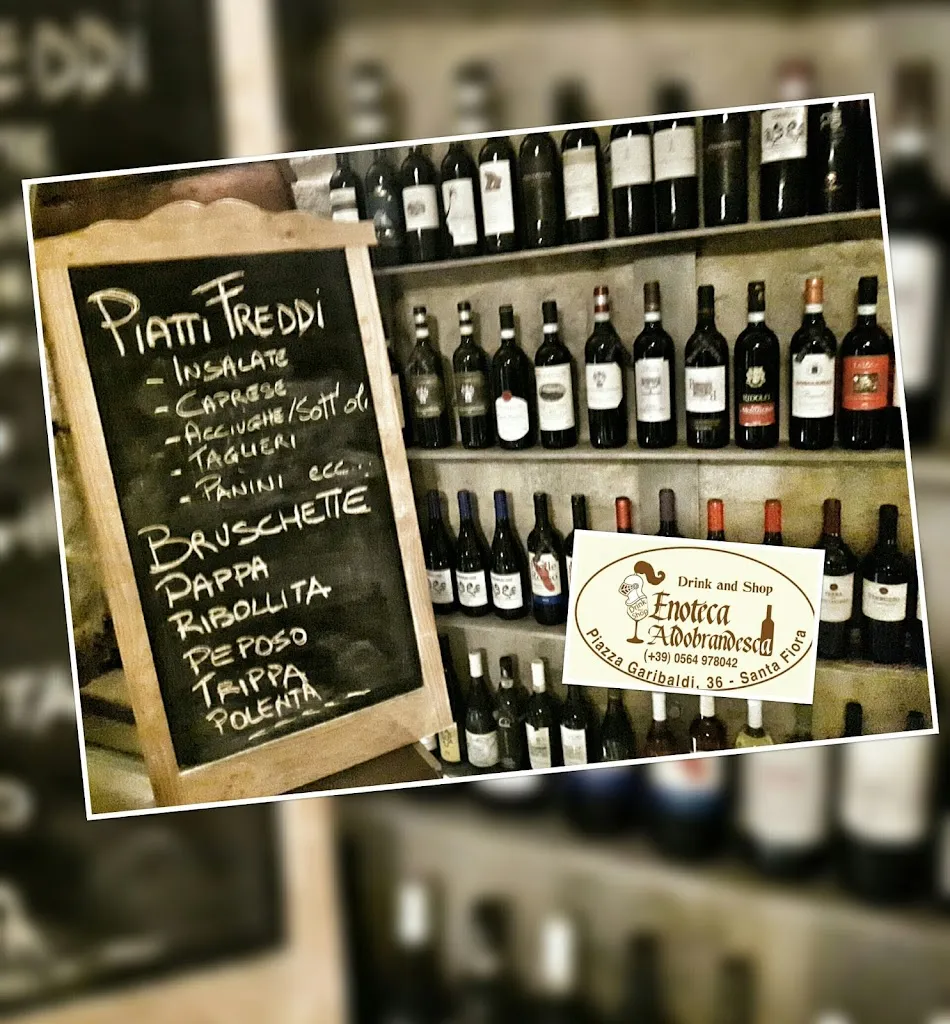 PIATTI FREDDI
- INSALATE
- CAPRESE
- ACCIUGHE/SOTT'OLI
- TAGLIERI
- PANINI ecc...
BRUSCHETTE
PAPPA
RIBOLLITA
PEPOSO
TRIPPA
POLENTA
RIDOLFI
Drink and Shop
Drink
Shop
Enoteca
Aldobrandesca
(+39) 0564 978042
Piazza Garibaldi, 36 - Santa Fiora